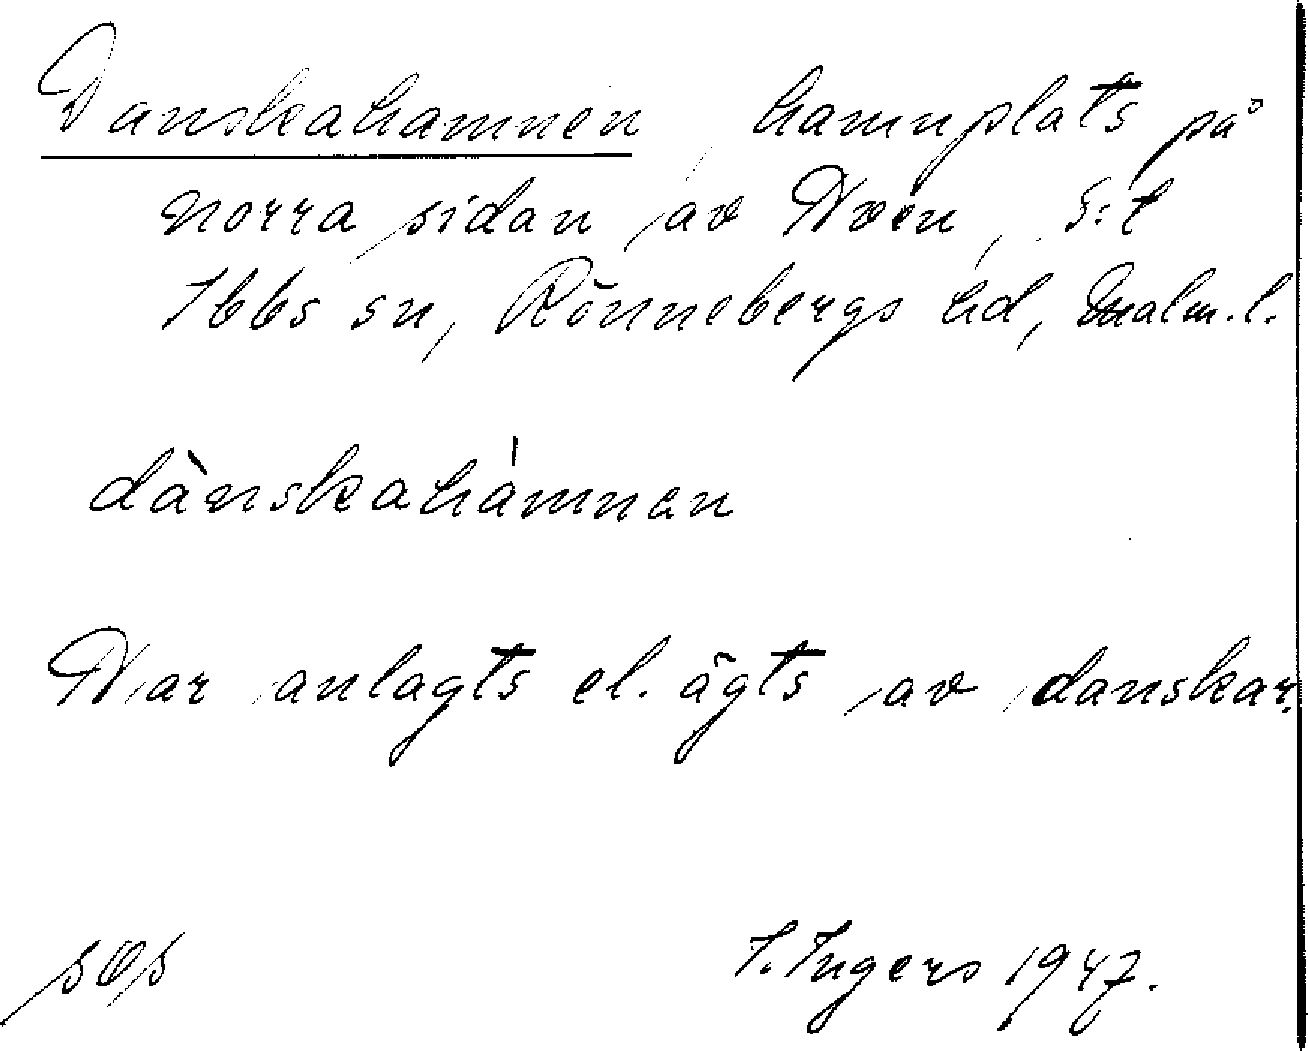 Danskahamnen, hamnplats på
norra sidan av Hven, S:t
Ibbs sn, Rönnebergs hd, Malm.l.
dànskahámnen
Har anlagts el. ägts av danskar.
I. Ingers 1947.